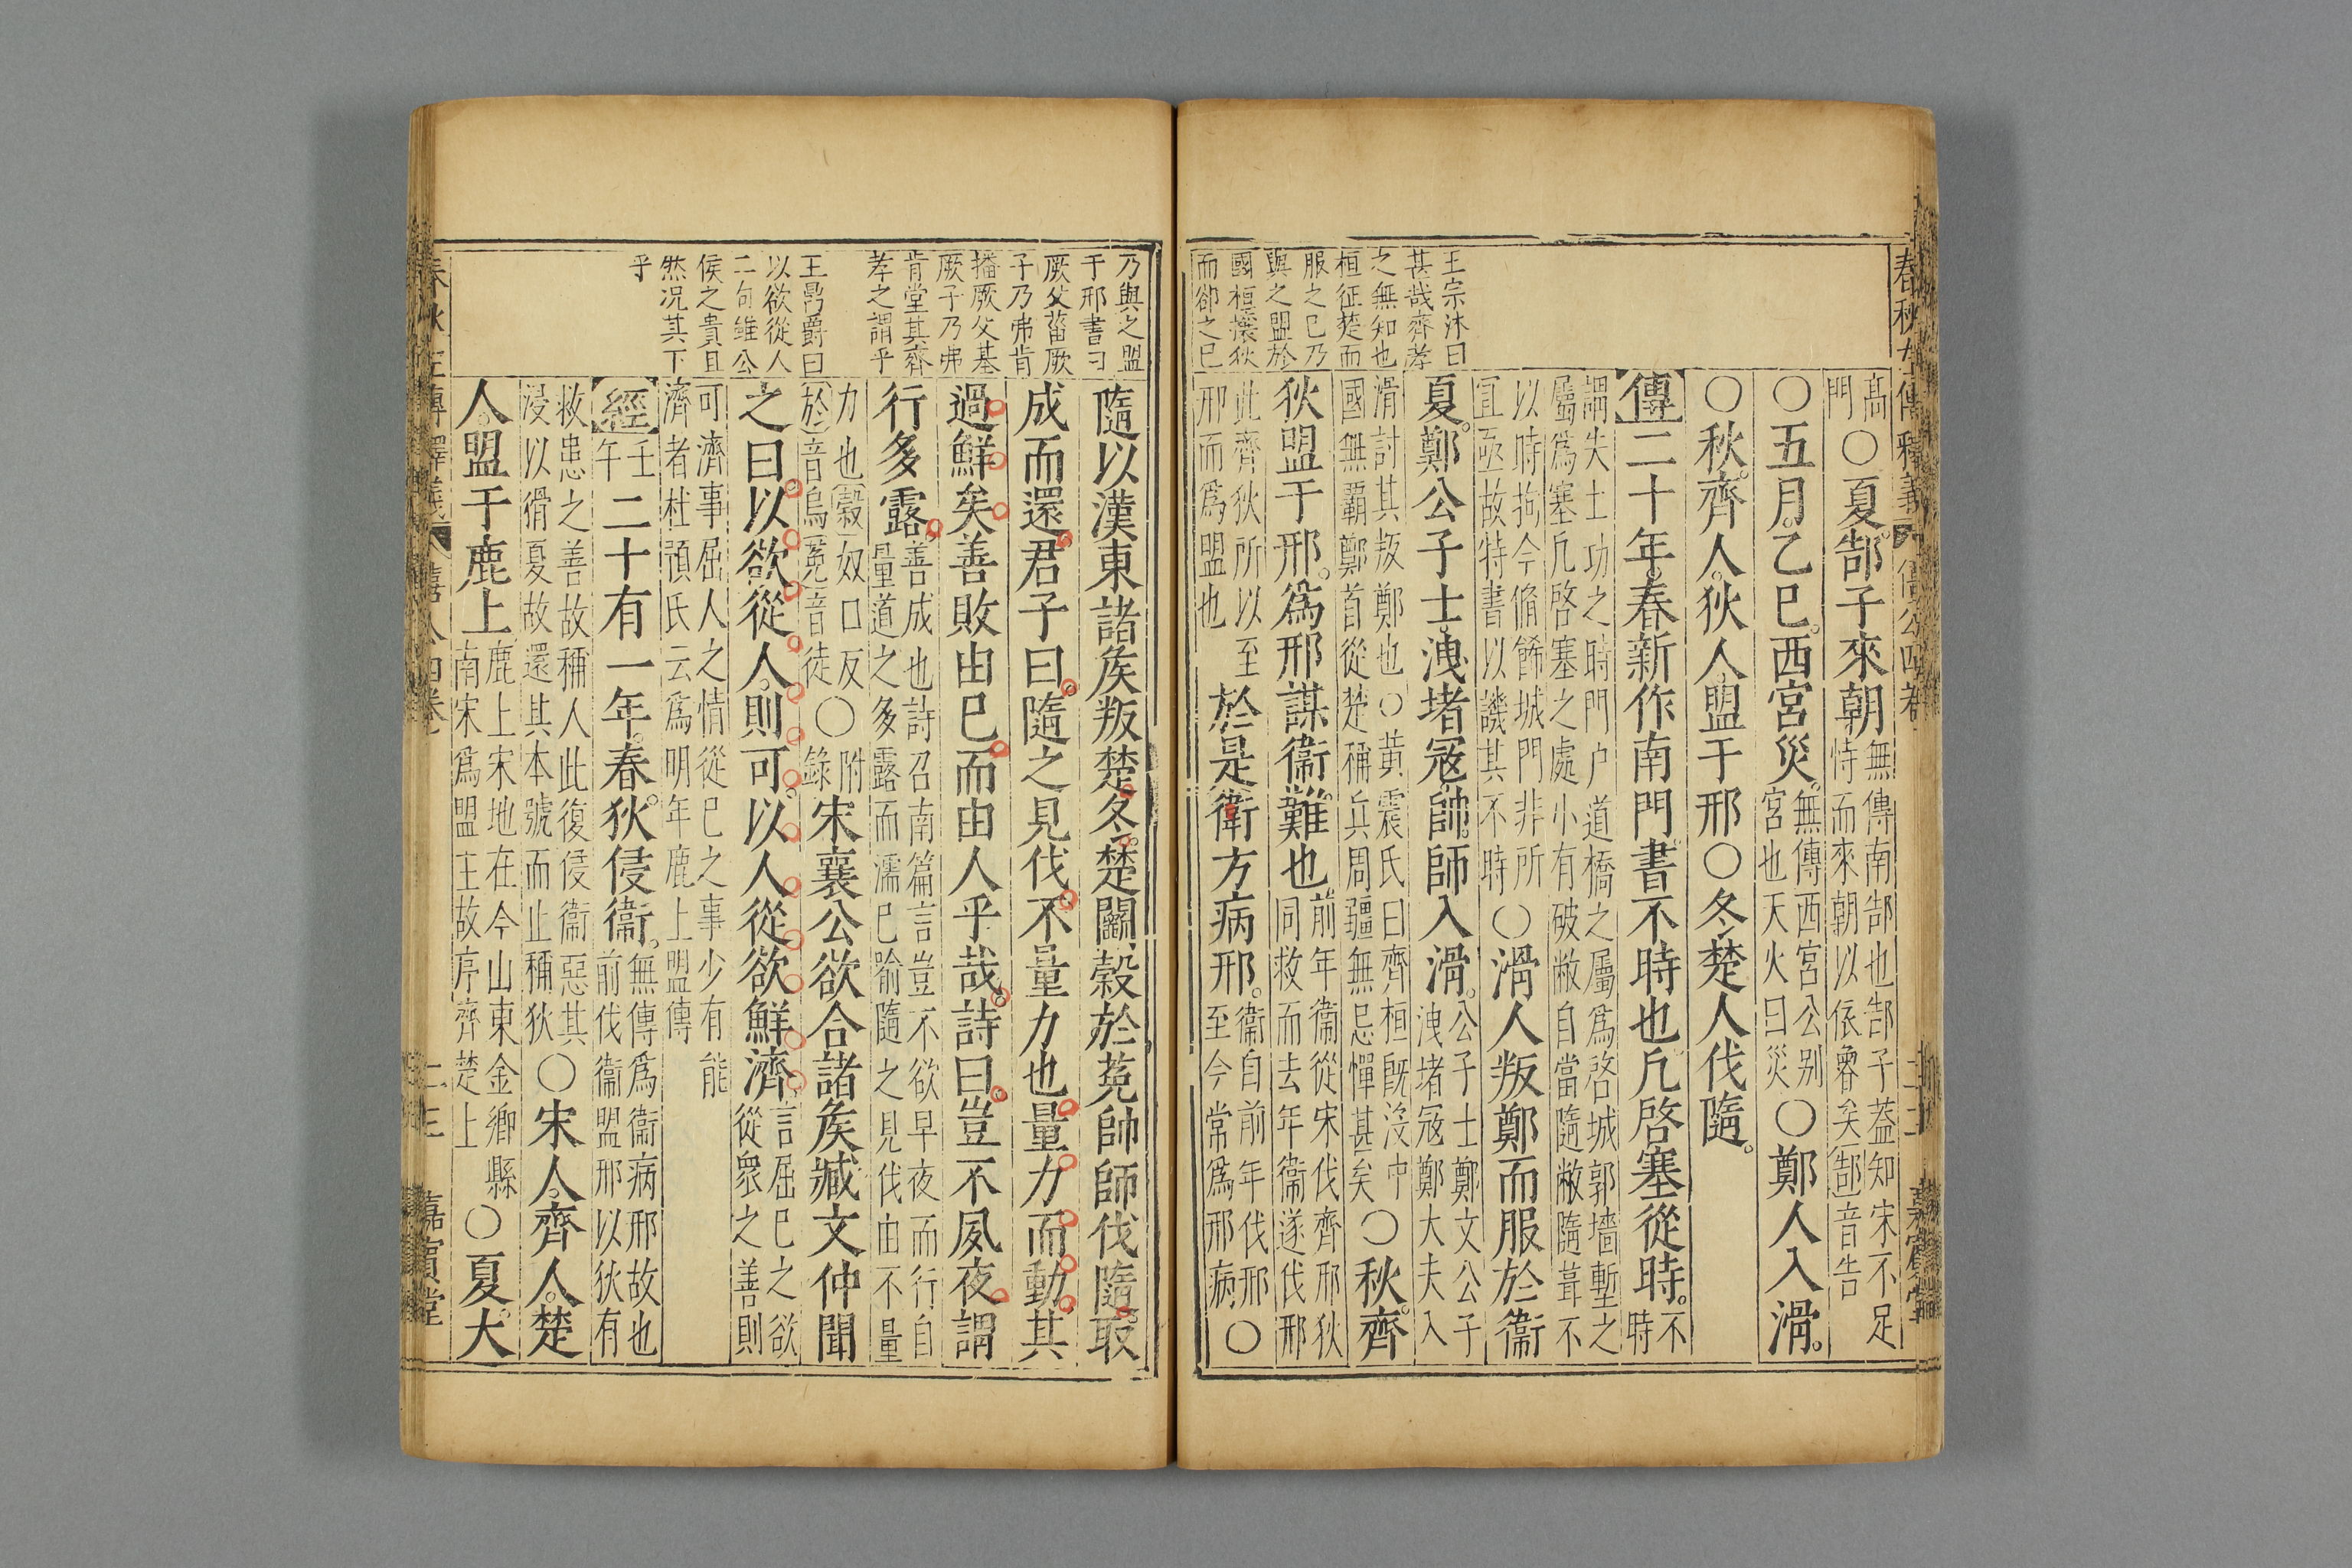 春秋左傳釋義
僖公四卷
二十二
嘉賓堂
王宗沐曰
甚哉齊孝
之無知也
桓征楚而
服之已乃
與之盟於
國桓攘狄
而卻之已
高
門
〇夏郜子來朝
無傳南郜也郜子蓋知宋不足
恃而來朝以依魯矣郜音告
〇五月乙巳西宮災
無傳西宮公别
宮也天火曰災
〇鄭人入滑
〇秋齊人狄人盟于邢〇冬楚人伐隨
傳二十年春新作南門書不時也凡啓塞從時
不
時
謂失土功之時門户道橋之屬爲啓城郭墻塹之
屬爲塞凡啓塞之處小有破敝自當隨敝隨葺不
以時拘今脩餙城門非所
宜亟故特書以譏其不時
〇滑人叛鄭而服於衞
夏鄭公子士洩堵寇帥師入滑
公子士鄭文公子
洩堵寇鄭大夫入
滑討其叛鄭也〇黃震氏曰齊桓既沒中
國無霸鄭首從楚稱兵周疆無忌憚甚矣
〇秋齊
狄盟于邢爲邢謀衞難也
前年衞從宋伐齊邢狄
同救而去年衞遂伐邢
此齊狄所以至
邢而爲盟也
於是衛方病邢
衞自前年伐邢
至今常爲邢病
〇
乃與之盟
于邢書曰
厥父菑厥
子乃弗肯
播厥父基
厥子乃弗
肯堂其齊
孝之謂乎
王鼎爵曰
以欲從人
二句雖公
侯之貴且
然况其下
乎
隨以漢東諸侯叛楚冬楚鬭穀於菟帥師伐隨取
成而還君子曰隨之見伐不量力也量力而動其
過鮮矣善敗由已而由人乎哉詩曰豈不夙夜謂
行多露
善成也詩召南篇言豈不欲早夜而行自
量道之多露而濡已喻隨之見伐由不量
力也穀奴口反
於音烏菟音徒
〇
附
錄
宋襄公欲合諸侯臧文仲聞
之曰以欲從人則可以人從欲鮮濟
言屈已之欲
從衆之善則
可濟事屈人之情從已之事少有能
濟者杜預氏云爲明年鹿上盟傳
經
壬
午
二十有一年春狄侵衞
無傳爲衞病邢故也
前伐衞盟邢以狄有
救患之善故稱人此復侵衞惡其
浸以猾夏故還其本號而止稱狄
〇宋人齊人楚
人盟于鹿上
鹿上宋地在今山東金鄉縣
南宋爲盟主故序齊楚上
〇夏大
春秋左傳釋義
僖公四卷
二十三
嘉賓堂